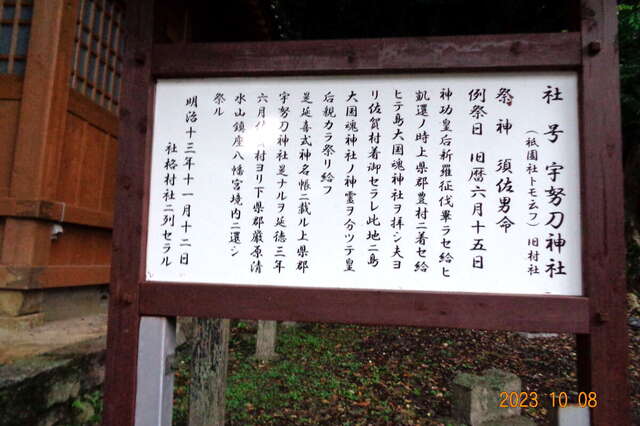 社号 宇努刀神社
（祇園社トモ云フ）旧村社
祭神 須佐男命
例祭日 旧暦六月十五日
神功皇后新羅征伐畢ラセ給ヒ
凱還ノ時上県郡豊村ニ着セ給
ヒテ島大国魂神社ヲ拝シ夫ヨ
リ佐賀村着御セラレ此地ニ島
大国魂神社ノ神霊ヲ分ツテ皇
后親カラ祭リ給フ
是延喜式神名帳ニ載ル上県郡
宇努刀神社是ナルヲ延徳三年
六月 村ヨリ下県郡厳原清
水山鎮座八幡宮境内ニ還シ
祭ル
明治三十年十一月十二日
社格村社ニ列セラル
2023 10 08